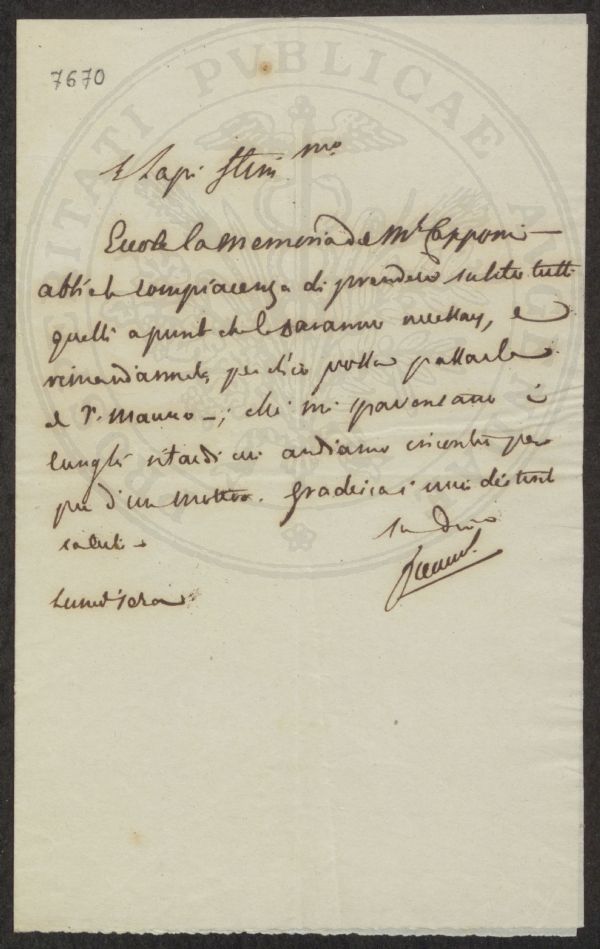 7670
Lapi Stim.mo
Eccole la memoria del Mr. Capponi –
abbia la compiacenza di prendere subito tutti
quelli apunti che le saranno necessarj, e
rimandarmela, perche io possa passarla
al Pe. Mauro –; chè mi spaventano i
lunghi ritardi cui andiamo incontro per
più d'un motivo. Gradisca i miei distinti
saluti –
Suo Devmo
Lunedi sera